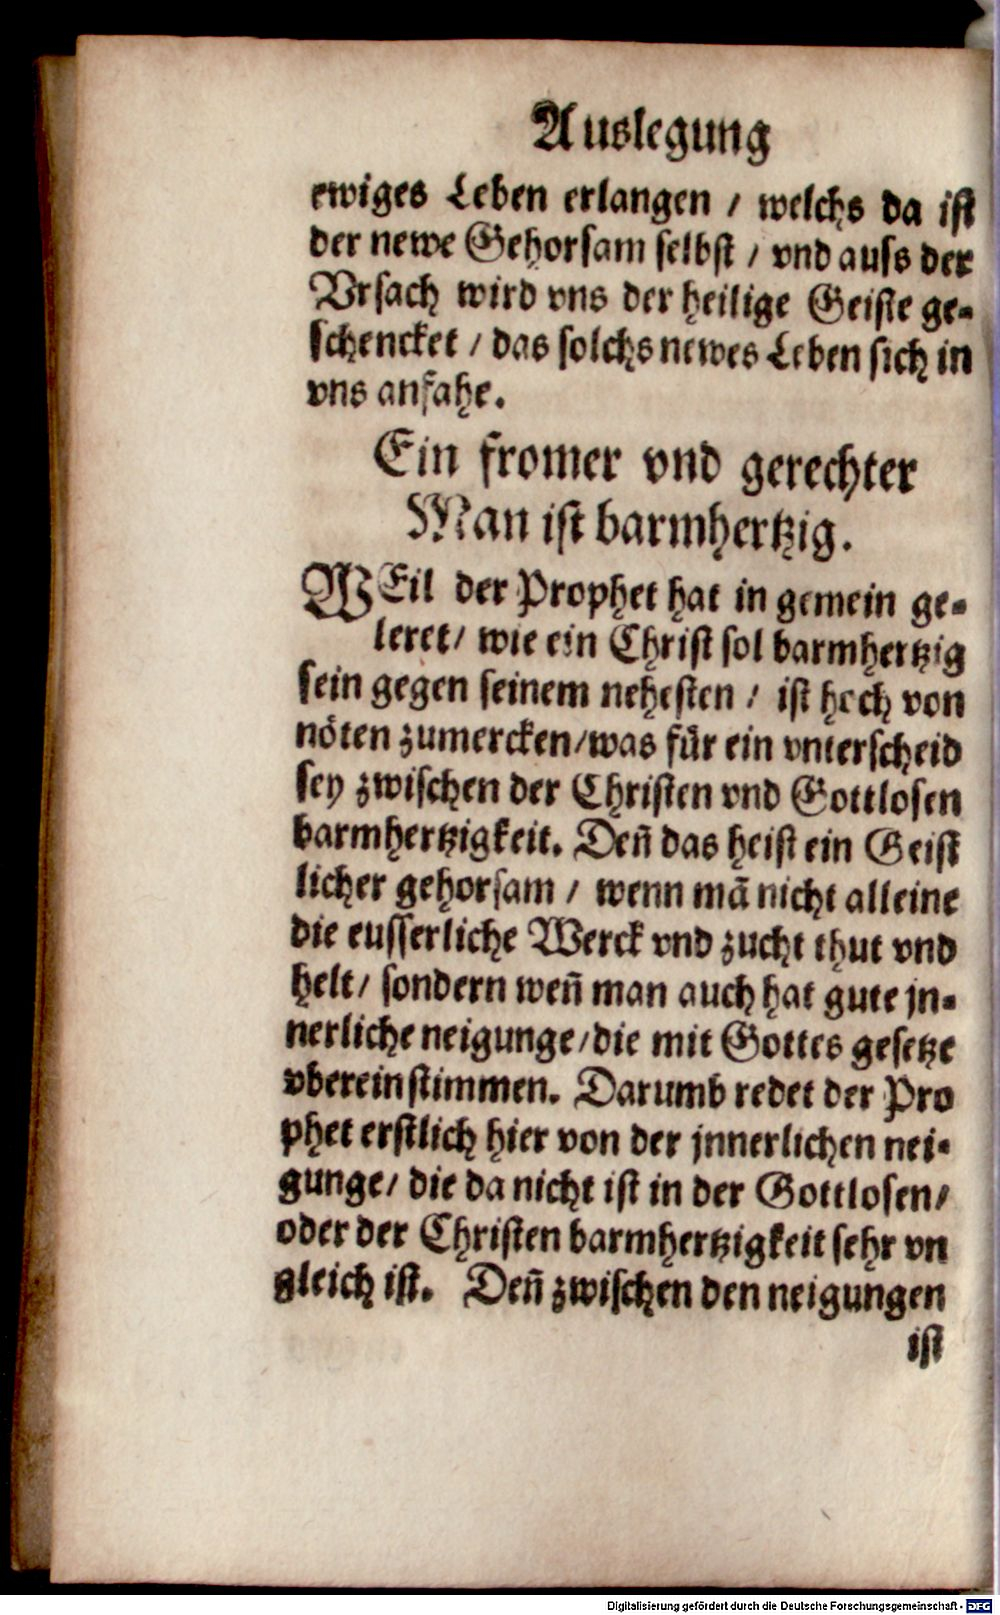 Auslegung
ewiges Leben erlangen / welchs da ist
der newe Gehorsam selbst / vnd auss der
Vrsach wird vns der heilige Geiste ge-
schencket / das solchs newes Leben sich in
vns anfahe.
Ein fromer vnd gerechter
Man ist barmhertzig.
WEil der Prophet hat in gemein ge-
leret / wie ein Christ sol barmhertzig
sein gegen seinem nehesten / ist hoch von
nöten zumercken / was für ein vnterscheid
sey zwischen der Christen vnd Gottlosen
barmhertzigkeit. Deñ das heist ein Geist
licher gehorsam / wenn mã nicht alleine
die eusserliche Werck vnd zucht thut vnd
helt / sondern weñ man auch hat gute jn-
nerliche neigunge / die mit Gottes gesetze
vbereinstimmen. Darumb redet der Pro
phet erstlich hier von der jnnerlichen nei-
gunge / die da nicht ist in der Gottlosen /
oder der Christen barmhertzigkeit sehr vn
gleich ist. Deñ zwischen den neigungen
ist
Digitalisierung gefördert durch die Deutsche Forschungsgemeinschaft - DFG